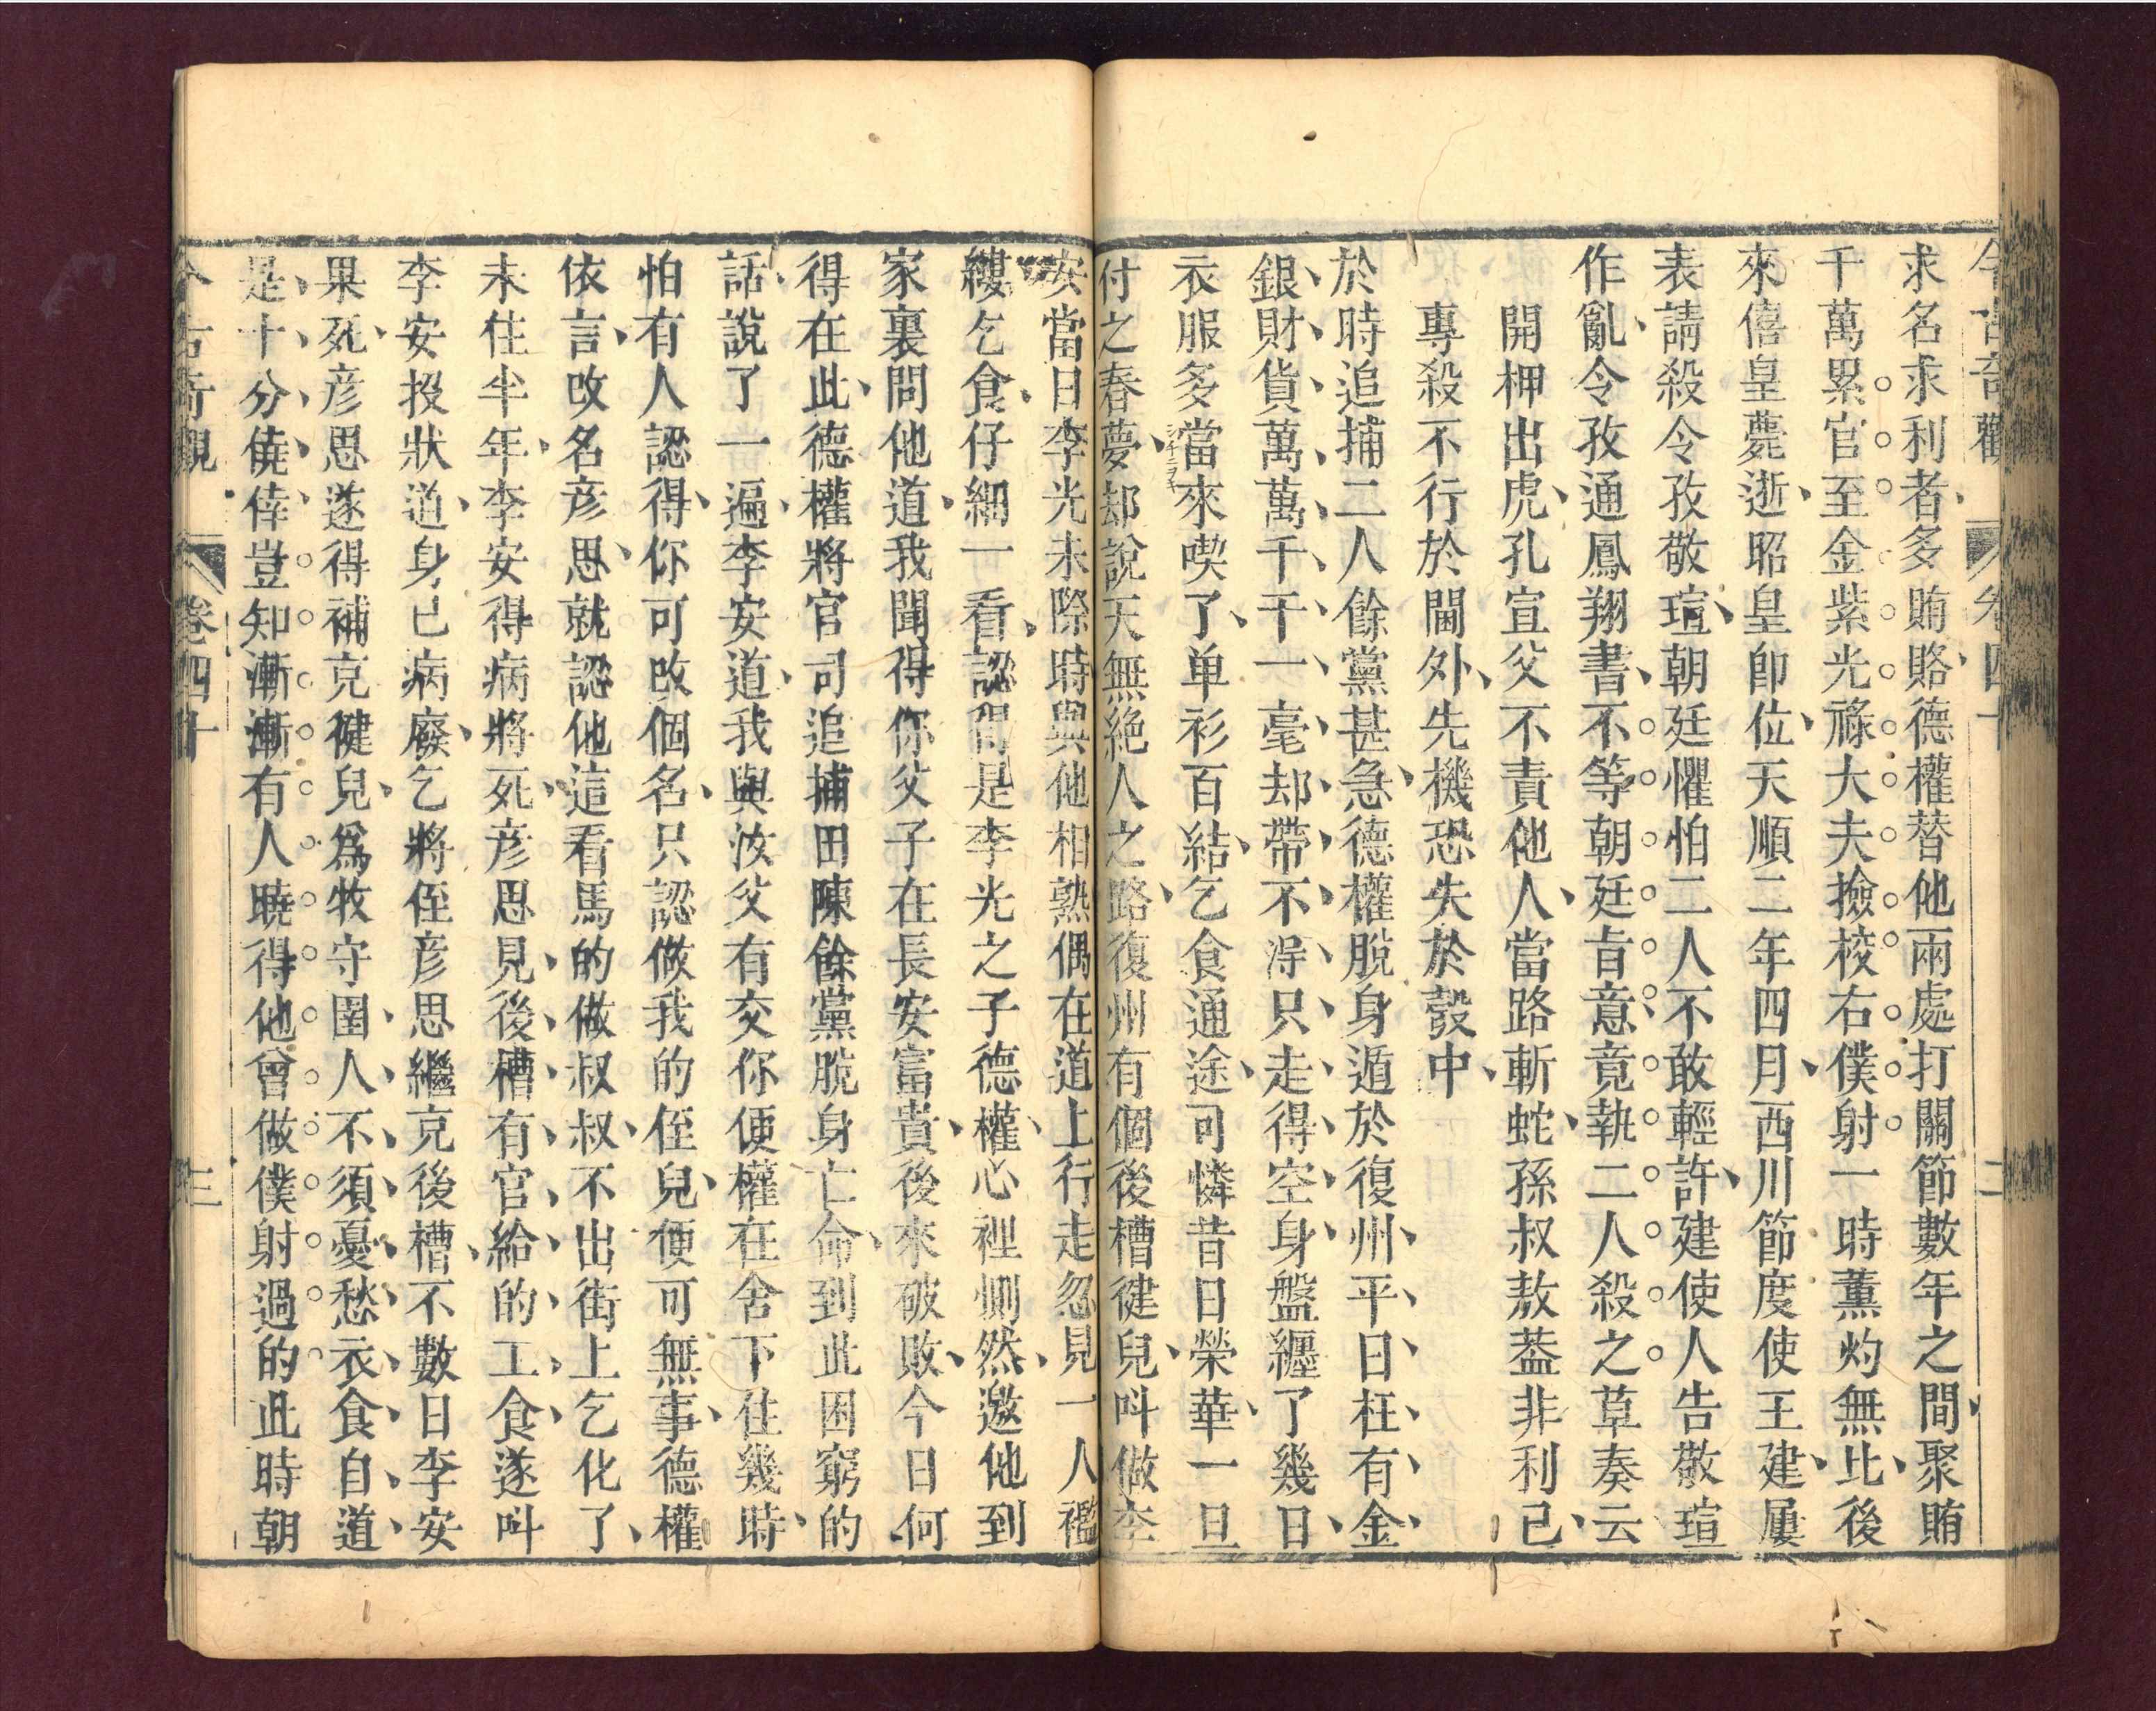 今古奇觀 卷四十 二
求名求利者多賄賂德權替他兩處打關節數年之間聚賄
千萬累官至金紫光祿大夫撿校右僕射一時薰灼無比後
來僖皇薨逝昭皇卽位天順二年四月西川節度使王建屢
表請殺令孜敬瑄朝廷懼怕二人不敢輕許建使人告敬瑄
作亂令孜通鳳翔書不等朝廷㫖意竟執二人殺之草奏云
開柙出虎孔宣父不責他人當路斬蛇孫叔敖葢非利己
專殺不行於閫外先機恐失於彀中
於時追捕二人餘黨甚急德權脫身遁於復州平日枉有金
銀財貨萬萬千千一毫却帶不得只走得空身盤纏了幾日
衣服多當來喫了单衫百結乞食通途可憐昔日榮華一旦
付之春夢却說天無絶人之路復州有個後槽健兒呌做李
安當日李光未際時與他相熟偶在道上行走忽見一人襤
縷乞食仔細一看認得是李光之子德權心裡惻然邀他到
家裏問他道我聞得你父子在長安富貴後來破敗今日何
得在此德權將官司追捕田陳餘黨脫身亡命到此困窮的
話說了一遍李安道我與汝父有交你便權在舍下住幾時
怕有人認得你可改個名只認做我的侄兒便可無事德權
依言改名彦思就認他這看馬的做叔叔不出街上乞化了
未住半年李安得病將死彦思見後槽有官給的工食遂呌
李安投狀道身已病廢乞將侄彦思繼克後槽不數日李安
果死彦思遂得補克健兒爲牧守圉人不須憂愁衣食自道
是十分僥倖豈知漸漸有人曉得他曾做僕射過的此時朝
今古奇觀 卷四十 三